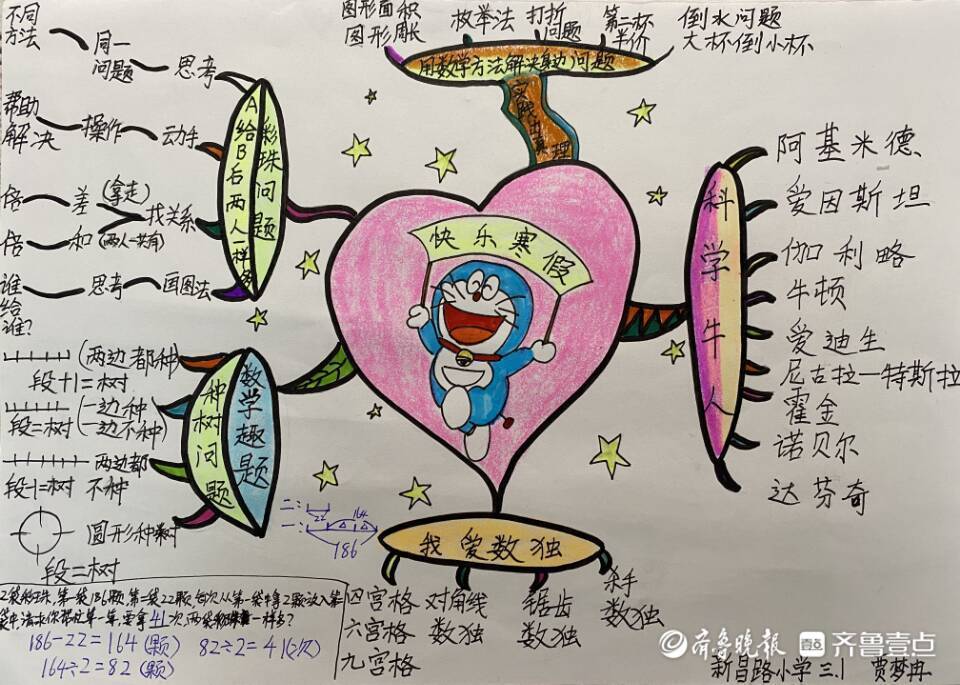 不同
方法
同一
问题
思考
帮助
解决
操作
动手
倍
差
(拿走)
找关系
倍
和
(两人一共有)
谁
给
谁?
思考
画图法
A给B后两人一样多
彩珠问题
图形面积
图形周长
枚举法
打折
问题
第二杯
半价
倒水问题
大杯倒小杯
用数学方法解决身边问题
实践出真理
快乐寒假
科学牛人
阿基米德
爱因斯坦
伽利略
牛顿
爱迪生
尼古拉一特斯拉
霍金
诺贝尔
达芬奇
数学趣题
种树问题
(两边都种)
段+1=树
(一边种
一边不种)
段=树
两边都
不种
段-1=树
圆形种树
段=树
二:
22
164
一:
186
我爱数独
四宫格
六宫格
九宫格
对角线
数独
锯齿
数独
杀手
数独
2袋彩珠,第一袋186颗,第二袋22颗,每次从第一袋中拿2颗放入第
要拿41次,两袋一样多?
186-22=164(颗)
164÷2=82(颗)
82÷2=41(次)
齐鲁晚报
齐鲁壹点
新昌路小学三.1 贾梦冉